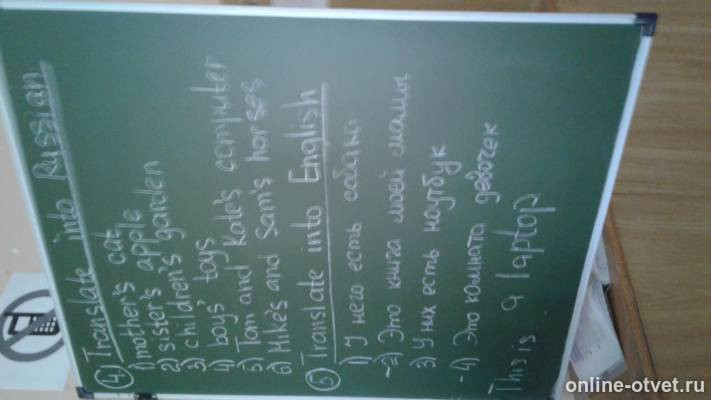 4. Translate into Russian
1) mother's cat
2) sister's apple
3) children's garden
4) boys' toys
5) Tom and Kate's computer
6) Mike's and Sam's horses
5. Translate into English
1) У него есть собака
-2) Это книга моей мамы
3) У них есть ноутбук
-4) Это комната девочек
This is a laptop
online-otvet.ru